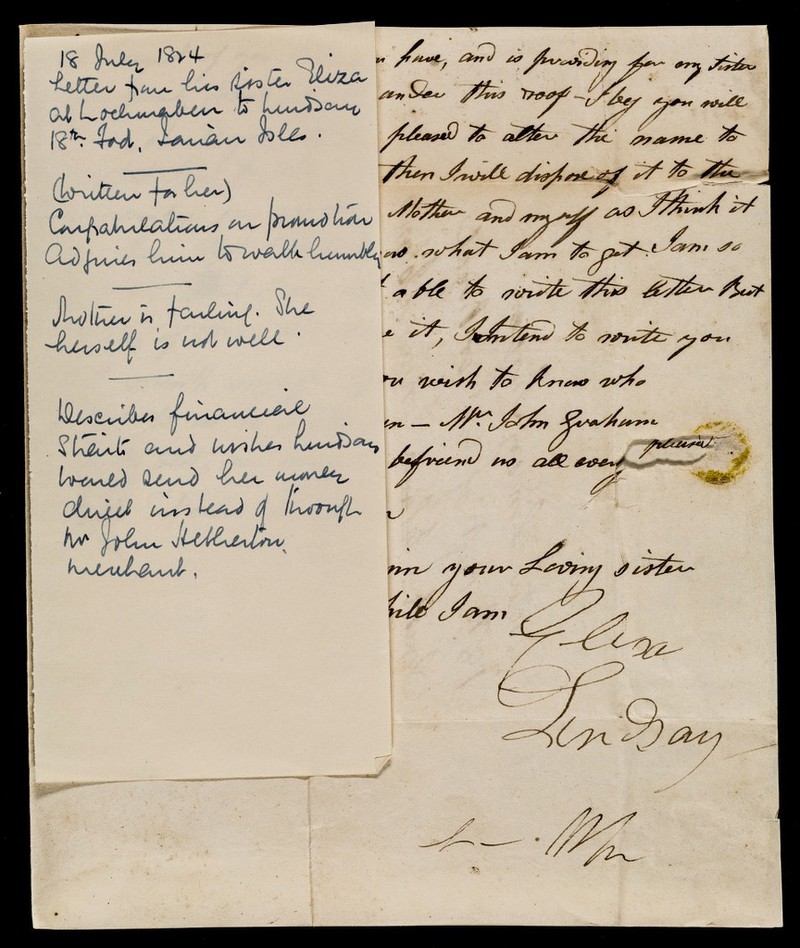 18 July 1824
Letter from his sister Eliza
at Lochmaben to Lindsay
18th Foot, Ionian Isles.
(Written for her)
Congratulations on promotion
Adjures him to walk humbly
Mother is failing. She
herself is not well.
Describes financial
Straits and wishes Lindsay
would send her money
direct instead of through
Mr John Hetherton,
merchant.
have, and is providing for my Sister
under this roof - I beg you will
pleased to alter the name to
then I will dispose of it to the
Mother and myself as I think it
what I am to get. I am so
able to write this letter But
it, I Intend to write you
wish to know who
- Mr. John Graham
befriend us all every
pleased
your Loving sister
I am
Eliza
Lindsay